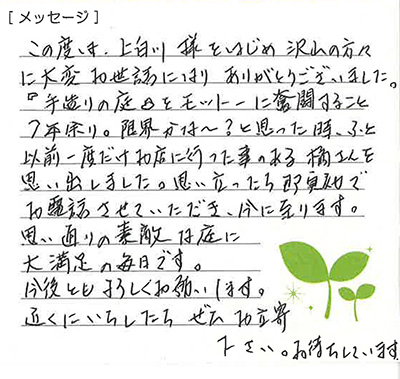 [メッセージ]
この度は、上白川 様をはじめ 沢山の方々
に大変お世話になり ありがとうございました。
『手造りの庭』をモットーに奮闘すること
7年余り。限界かな〜?と思った時、ふと
以前一度だけお店に行った事のある 橘さんを
思い出しました。思い立ったら即電話で
お電話させていただき、今に至ります。
思い通りの素敵な庭に
大満足の毎日です。
今後ともよろしくお願いします。
近くにいらしたら ぜひ お立寄
下さい。お待ちしています